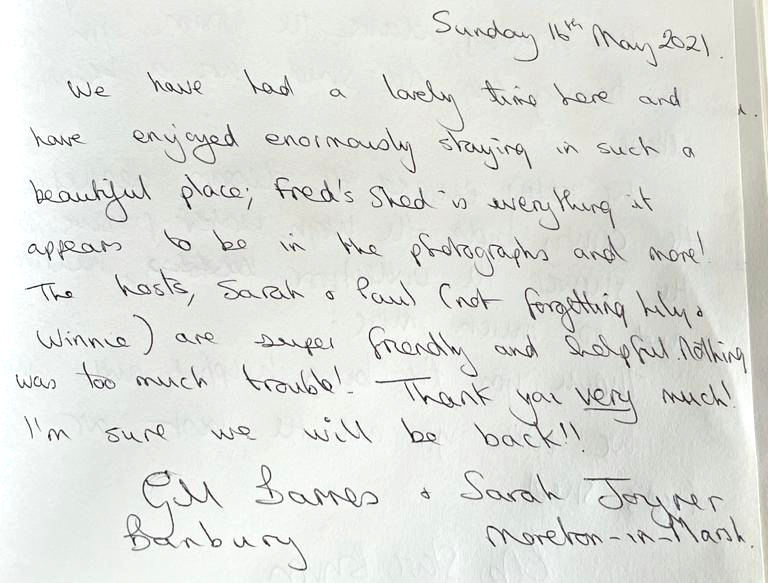 Sunday 16th May 2021.
We have had a lovely time here and
have enjoyed enormously staying in such a
beautiful place; Fred's Shed is everything it
appears to be in the photographs and more!
The hosts, Sarah & Paul (not forgetting Lily &
Winnie) are super friendly and helpful. Nothing
was too much trouble! Thank you very much!
I'm sure we will be back!!
Barnes & Sarah Joyner
Banbury Moreton-in-Marsh.